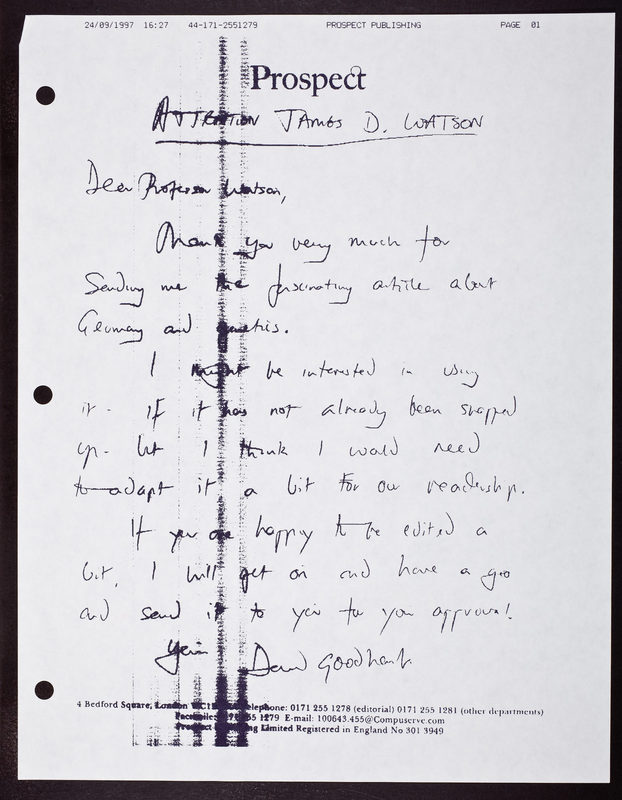 24/09/1997 16:27 44-171-2551279 PROSPECT PUBLISHING PAGE 01
Prospect
ATTENTION JAMES D. WATSON
Dear Professor Watson,
Thank you very much for
Sending me the fascinating article about
Germany and genetics.
I might be interested in using
it - if it has not already been snapped
up - but I think I would need
to adapt it a bit for our readership.
If you are happy to be edited a
bit, I will get on and have a go
and send it to you for your approval!
Yours David Goodhart
4 Bedford Square, London Telephone: 0171 255 1278 (editorial) 0171 255 1281 (other departments)
Facsimile: 0171 255 1279 E-mail: 100643.455@Compuserve.com
Prospect Publishing Limited Registered in England No 301 3949